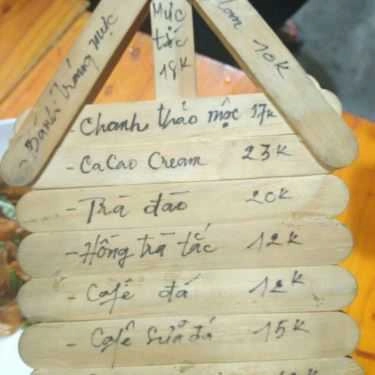 - Bánh Tráng mực
Mực
tắc
18K
10K
- Chanh thảo mộc 17K
- CaCao Cream 23K
- Trà đào 20K
- Hồng trà tắc 12K
- Café đá 12K
- Café sữa đá 15K